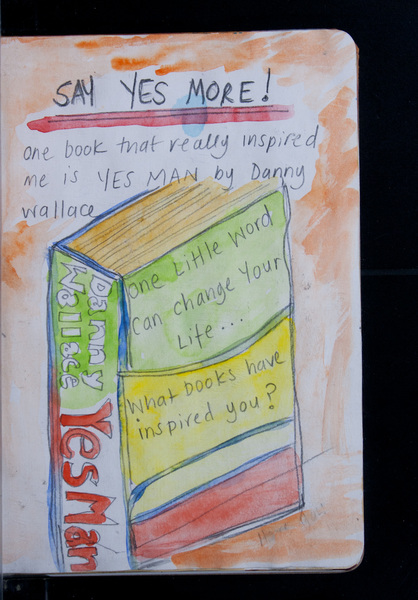 SAY YES MORE!
one book that really inspired
me is YES MAN by Danny
Wallace
One Little Word
Can change Your
Life...
What books have
inspired you?
Danny
Wallace
Yes Man